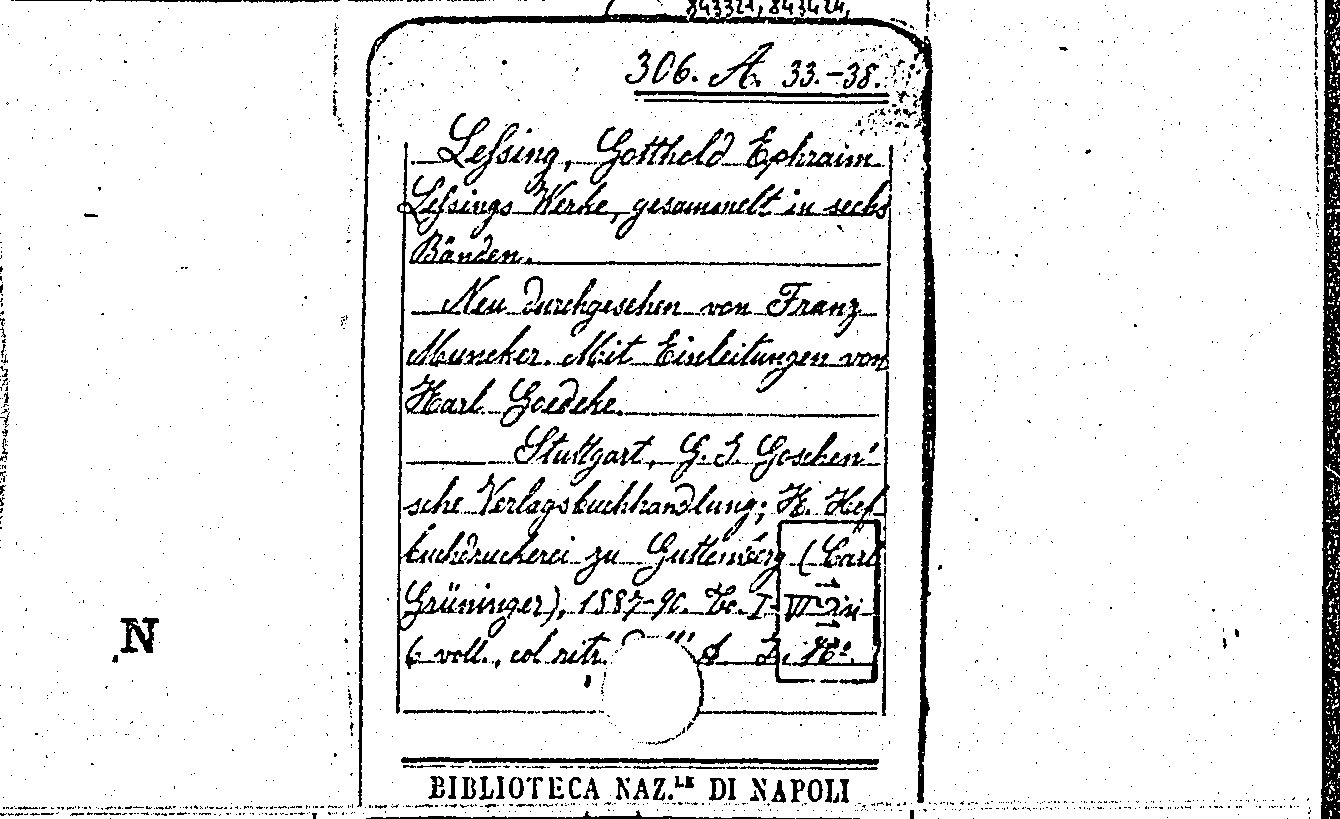 843321, 843424,
306. A. 33.-38.
Lessing, Gotthold Ephraim
Lessings Werke, gesammelt in sechs
Bänden.
Neu durchgesehen von Franz
Muncker. Mit Einleitungen von
Karl Goedeke.
Stuttgart, G. J. Goschen'
sche Verlagsbuchhandlung; K. Hof
buchdruckerei zu Guttenberg (Carl
Grüninger), 1887-90. Vo. I-VI
6 voll., col ritr.
N
BIBLIOTECA NAZ.LE DI NAPOLI